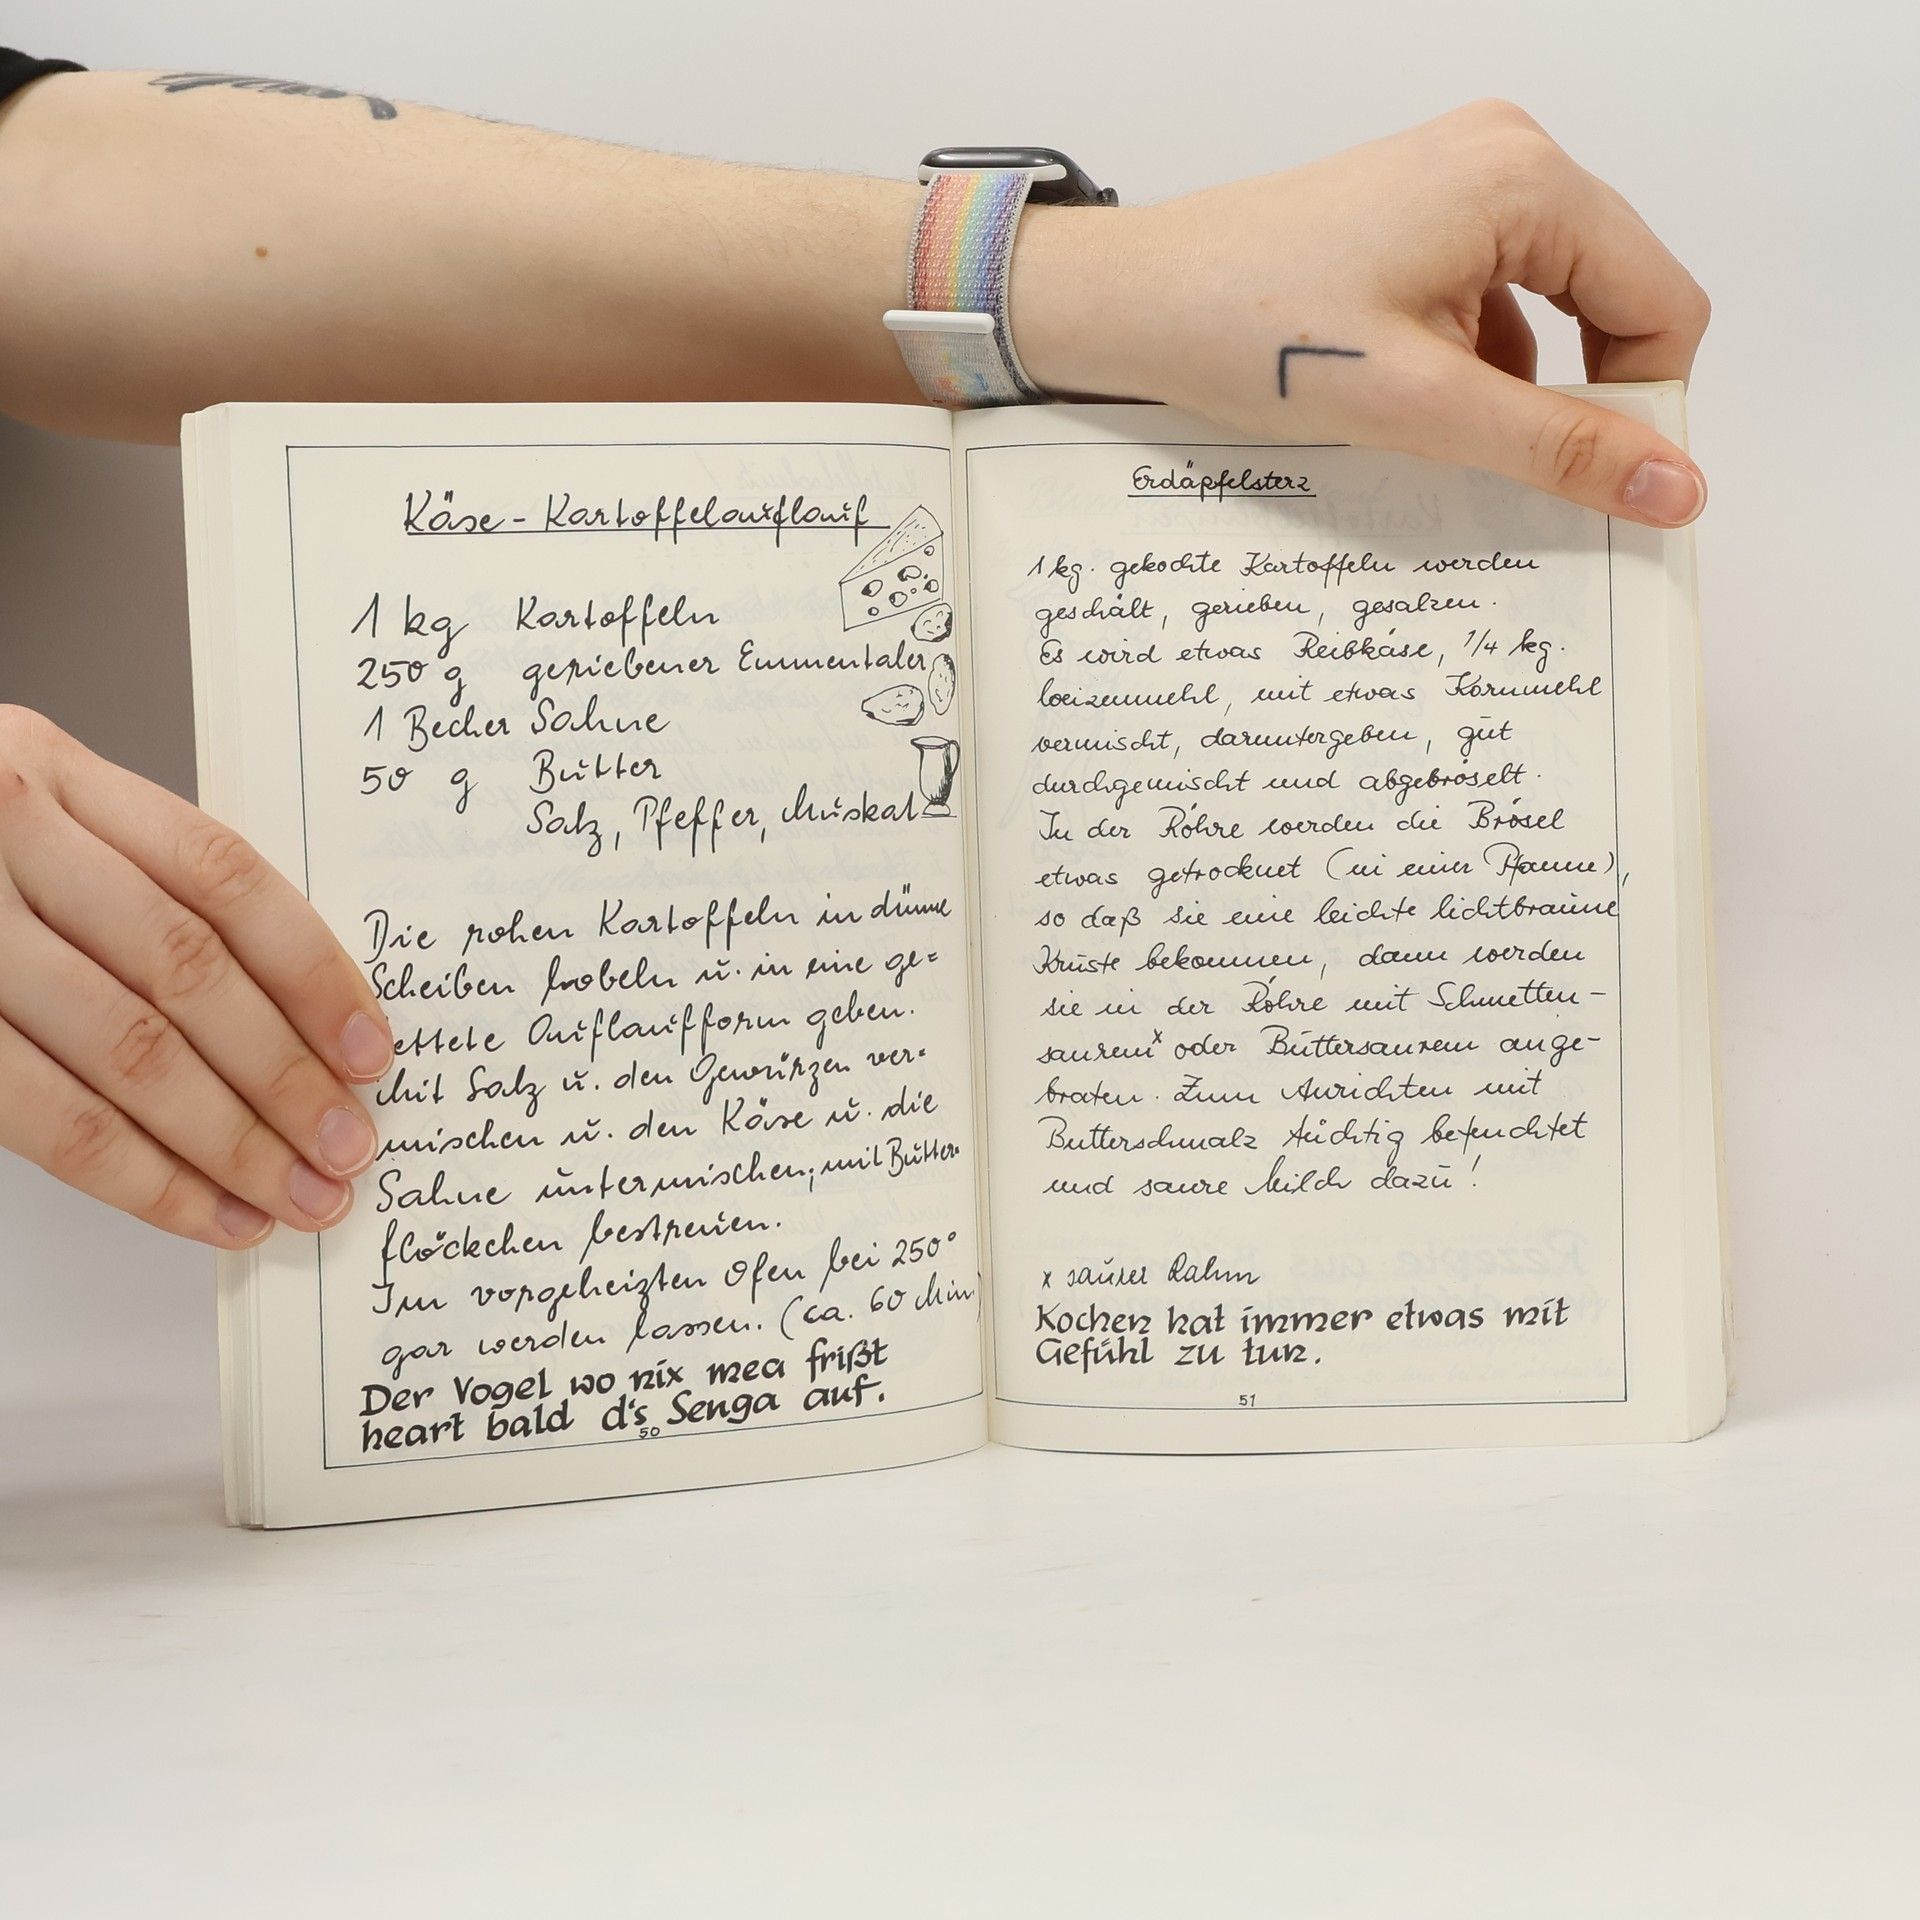 Käse - Kartoffelauflauf
1 kg Kartoffeln
250 g geriebener Emmentaler
1 Becher Sahne
50 g Butter
Salz, Pfeffer, Muskat
Die rohen Kartoffeln in dünne
Scheiben hobeln u. in eine ge=
ettete Auflaufform geben.
Mit Salz u. den Gewürzen ver=
mischen u. den Käse u. die
Sahne untermischen; mit Butter=
flöckchen bestreuen.
Im vorgeheizten Ofen bei 250°
gar werden lassen. (ca. 60 Min)
Der Vogel wo nix mea frißt
heart bald d's Senga auf.
50
Erdäpfelsterz
1 kg. gekochte Kartoffeln werden
geschält, gerieben, gesalzen.
Es wird etwas Reibkäse, 1/4 kg.
Weizenmehl, mit etwas Kornmehl
vermischt, daruntergeben, gut
durchgemischt und abgebröselt.
In der Röhre werden die Brösel
etwas getrocknet (in einer Pfanne),
so daß sie eine leichte lichtbraune
Kruste bekommen, dann werden
sie in der Röhre mit Schmetten-
saurem x oder Buttersaurem ange-
braten. Zum Anrichten mit
Butterschmalz tüchtig befeuchtet
und saure Milch dazu!
x saurer Rahm
Kochen hat immer etwas mit
Gefühl zu tun.
51